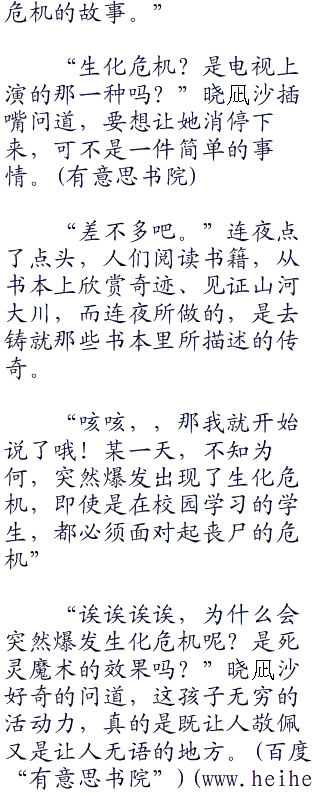 危机的故事。”
“生化危机？是电视上
演的那一种吗？”晓凪沙插
嘴问道，要想让她消停下
来，可不是一件简单的事
情。(有意思书院)
“差不多吧。”连夜点
了点头，人们阅读书籍，从
书本上欣赏奇迹、见证山河
大川，而连夜所做的，是去
铸就那些书本里所描述的传
奇。
“咳咳，，那我就开始
说了哦！某一天，不知为
何，突然爆发出现了生化危
机，即使是在校园学习的学
生，都必须面对起丧尸的危
机”
“诶诶诶诶，为什么会
突然爆发生化危机呢？是死
灵魔术的效果吗？”晓凪沙
好奇的问道，这孩子无穷的
活动力，真的是既让人敬佩
又是让人无语的地方。(百度
“有意思书院”)(www.heihe